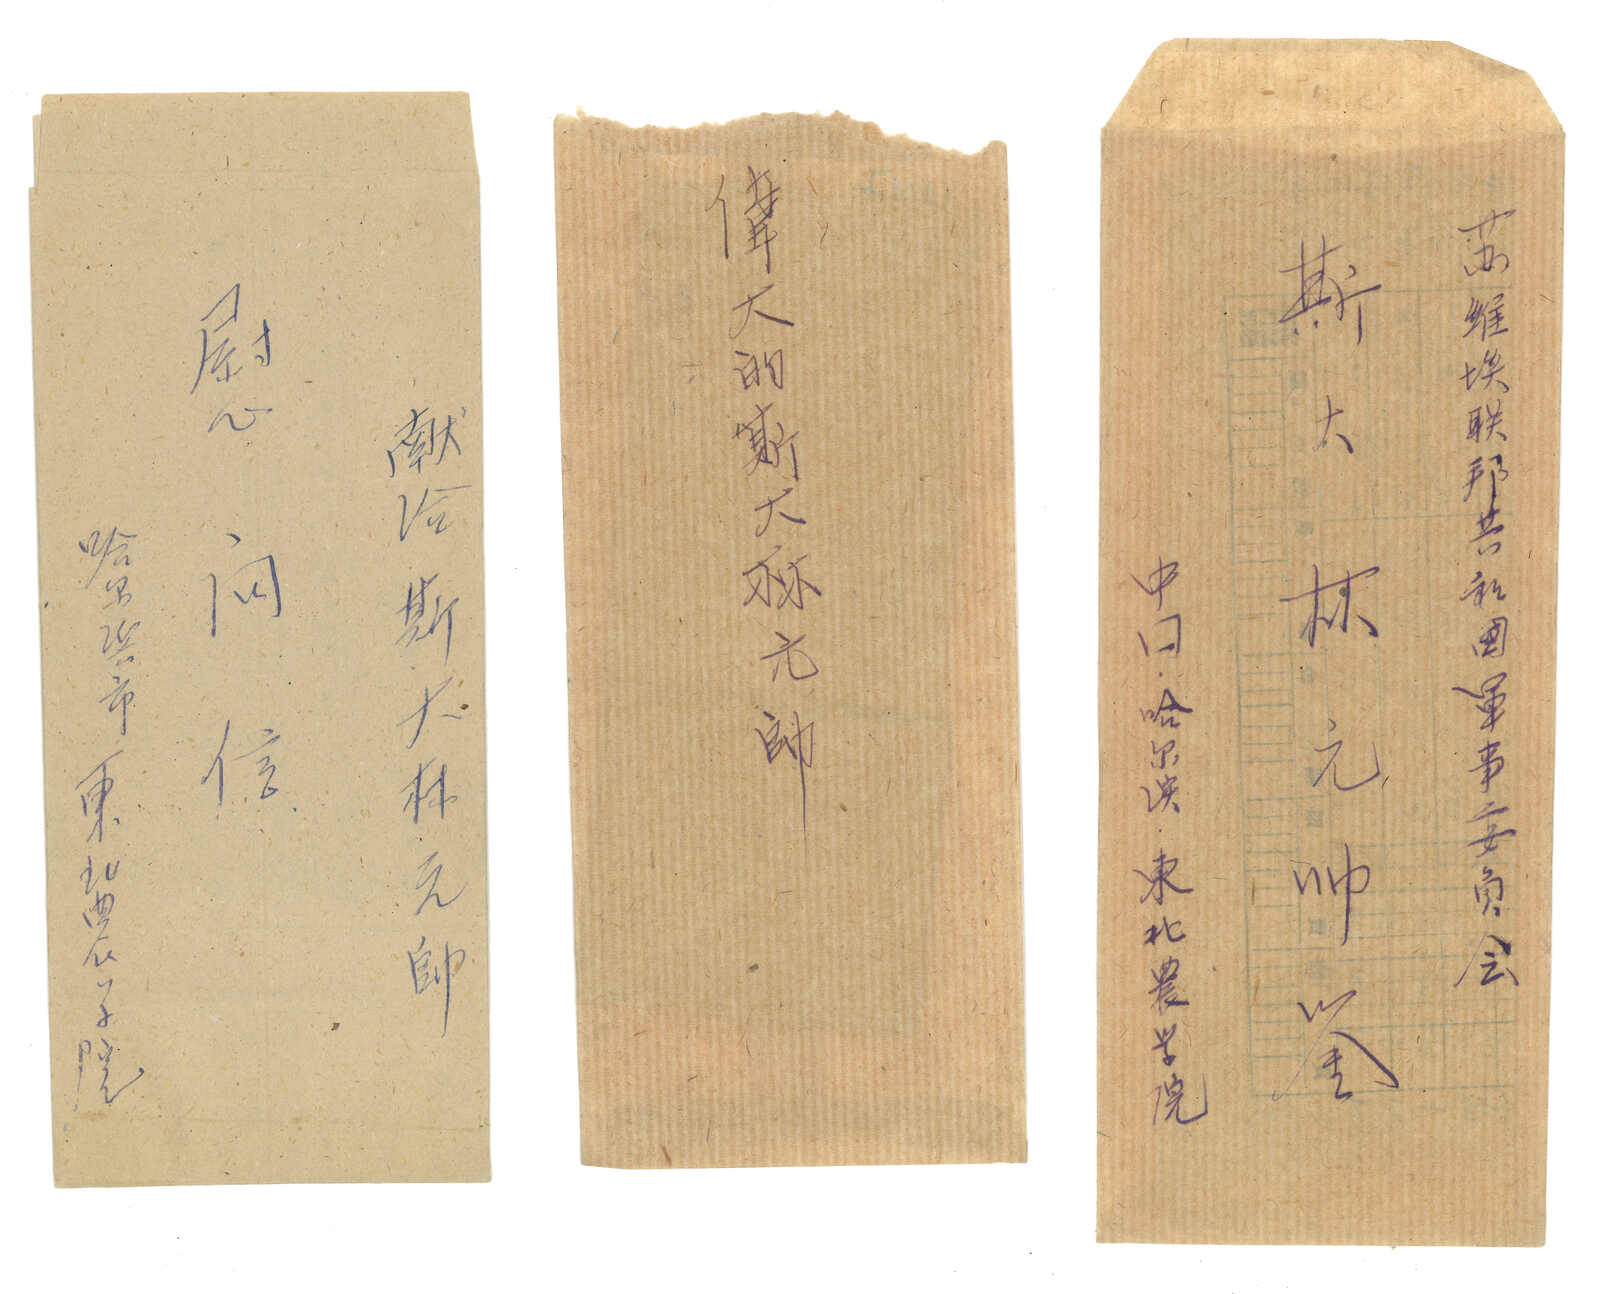 献给斯大林元帥
慰问信
哈尔滨市東北農学院
偉大的斯大林元帥
苏維埃联邦共和國軍事委員会
斯大林元帅鉴
中囗·哈尔滨·東北農学院